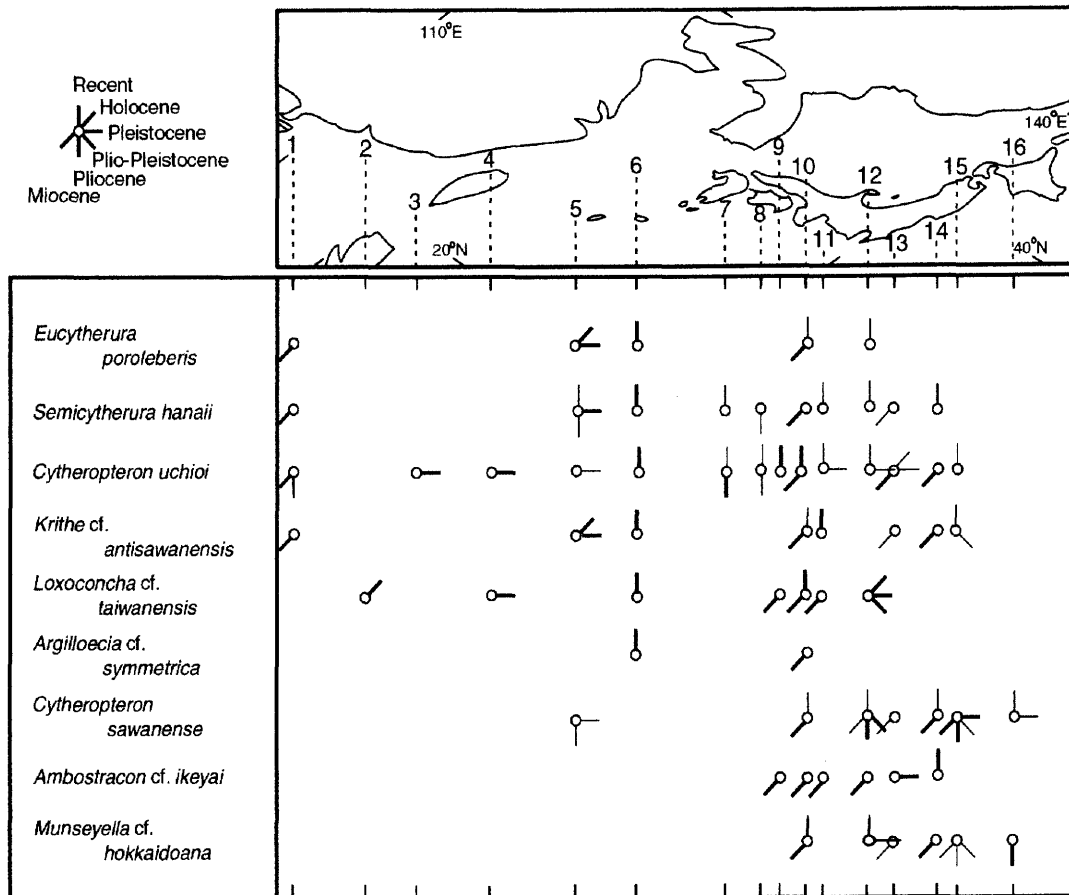 110°E
Recent
Holocene
Pleistocene
Plio-Pleistocene
Pliocene
Miocene
140°E
1
2
3
4
5
6
7
8
9
10
11
12
13
14
15
16
20°N
40°N
Eucytherura
poroleberis
Semicytherura hanaii
Cytheropteron uchioi
Krithe cf.
antisawanensis
Loxoconcha cf.
taiwanensis
Argilloecia cf.
symmetrica
Cytheropteron
sawanense
Ambostracon cf. ikeyai
Munseyella cf.
hokkaidoana